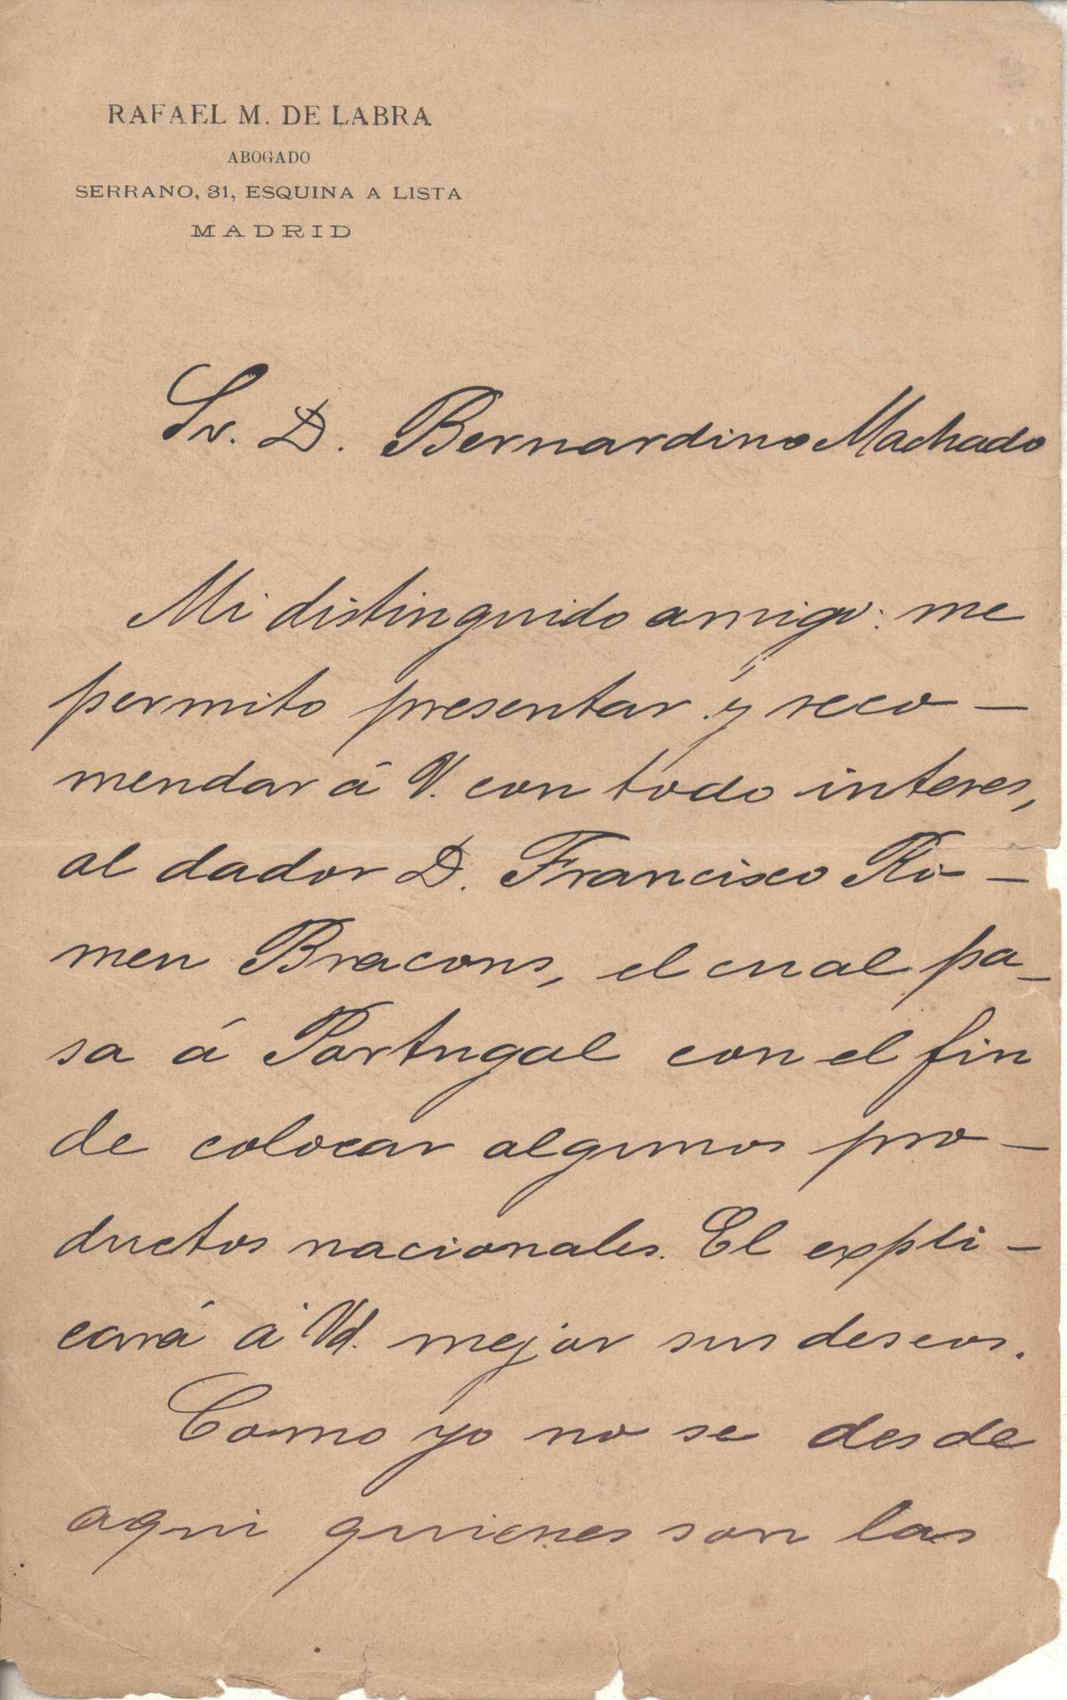 RAFAEL M. DE LABRA
ABOGADO
SERRANO, 31, ESQUINA A LISTA
MADRID
Sr. D. Bernardino Machado
Mi distinguido amigo: me
permito presentar y reco-
mendar á V. con todo interes,
al dador D. Francisco Ri-
meu Bracons, el cual pa-
sa á Portugal con el fin
de colocar algunos pro-
ductos nacionales. El expli-
cará á Vd. mejor sus deseos.
Como yo no se desde
aqui quienes son las